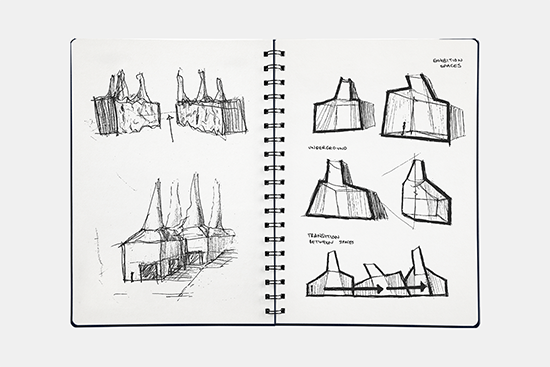 EXHIBITION
SPACES
UNDERGROUND
TRANSITION
BETWEEN SPACES